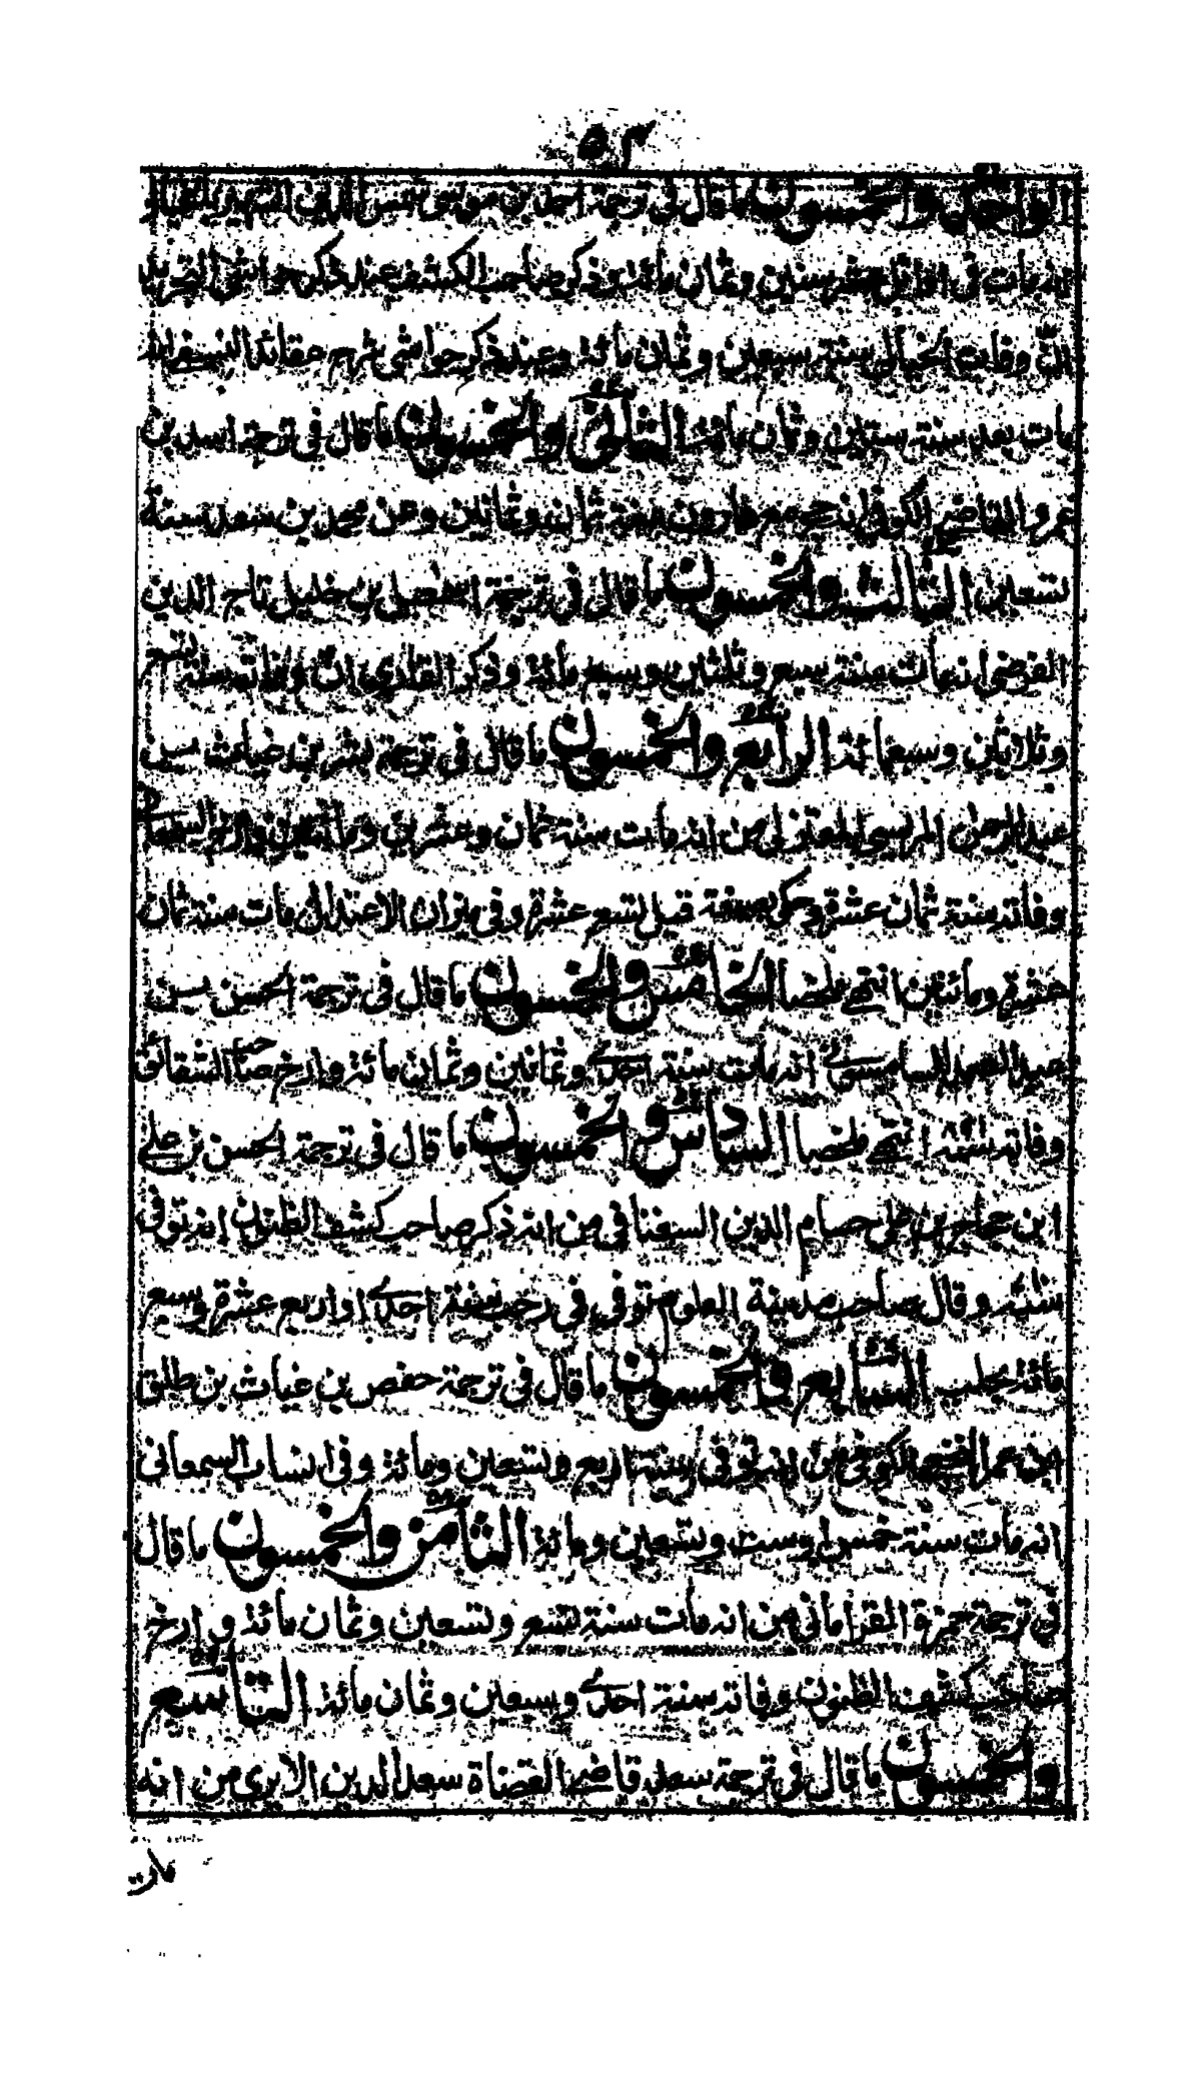 ٥٢
الواحد والخمسون ما قال في ترجمة احمد بن موسى شمس الدين الشهير بالخيالي
انه مات في اوائل عشر سنين وثمان مائة وذكر صاحب الكشف عند ذكر حواشي التجريد
ان وفات الخيالي سنة سبعين وثمان مائة وعند ذكر حواشي شرح عقائد النسفي انه
مات بعد سنة ستين وثمان مائة الثاني والخمسون ما قال في ترجمة اسد بن
عمرو القاضي الكوفي انه حج مع هارون سنة ثمان وثمانين وعن محمد بن سعد سنة
تسعين الثالث والخمسون ما قال في ترجمة اسمعيل بن خليل تاج الدين
الفرضي انه مات سنة سبع وثلثين وسبع مائة وذكر القاري ان وفاته سنة تسع
وثلاثين وسبعمائة الرابع والخمسون ما قال في ترجمة بشر بن غياث بن
عبد الرحمن المريسي المعتزلي من انه مات سنة ثمان وعشرين ومائتين وارخ السمعاني
وفاته سنة ثمان عشرة وحكى بصيغة قيل تسع عشرة وفي ميزان الاعتدال مات سنة ثمان
عشرة ومائتين انتهى ملخصا الخامس والخمسون ما قال في ترجمة الحسن بن
عبد الصمد السامسوني انه مات سنة احدى وثمانين وثمان مائة وارخ صاحب الشقائق
وفاته سنة ٨٩١ انتهى ملخصا السادس والخمسون ما قال في ترجمة الحسن بن علي
ابن حجاج بن علي حسام الدين السغناقي من انه ذكر صاحب كشف الظنون انه توفي
سنة وقال صاحب مدينة العلوم توفي في رجب سنة احدى او اربع عشرة وسبع
مائة بحلب السابع والخمسون ما قال في ترجمة حفص بن غياث بن طلق
ابن عمر النخعي الكوفي من انه توفي سنة اربع وتسعين ومائة وفي انساب السمعاني
انه مات سنة خمس او ست وتسعين ومائة الثامن والخمسون ما قال
في ترجمة حمزة القراماني من انه مات سنة تسع وتسعين وثمان مائة وارخ
صاحب كشف الظنون وفاته سنة احدى وسبعين وثمان مائة التاسع
والخمسون ما قال في ترجمة سعد قاضي القضاة سعد الدين الديري من انه
مات